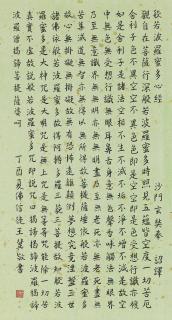 般若波羅蜜多心經 沙門玄奘奉 詔譯
觀自在菩薩行深般若波羅蜜多時照見五蘊皆空度一切苦厄
舍利子色不異空空不異色色即是空空即是色受想行識亦復
如是舍利子是諸法空相不生不滅不垢不淨不增不減是故空
中無色無受想行識無眼耳鼻舌身意無色聲香味觸法無眼界
乃至無意識界無無明亦無無明盡乃至無老死亦無老死盡無
苦集滅道無智亦無得以無所得故菩提薩埵依般若波羅蜜多
故心無罣礙無罣礙故無有恐怖遠離顛倒夢想究竟涅槃三世
諸佛依般若波羅蜜多故得阿耨多羅三藐三菩提故知般若波
羅蜜多是大神咒是大明咒是無上咒是無等等咒能除一切苦
真實不虛故說般若波羅蜜多咒即說咒曰揭諦揭諦波羅揭諦
波羅僧揭諦菩提薩婆呵
丁酉夏佛信徒王 敬書